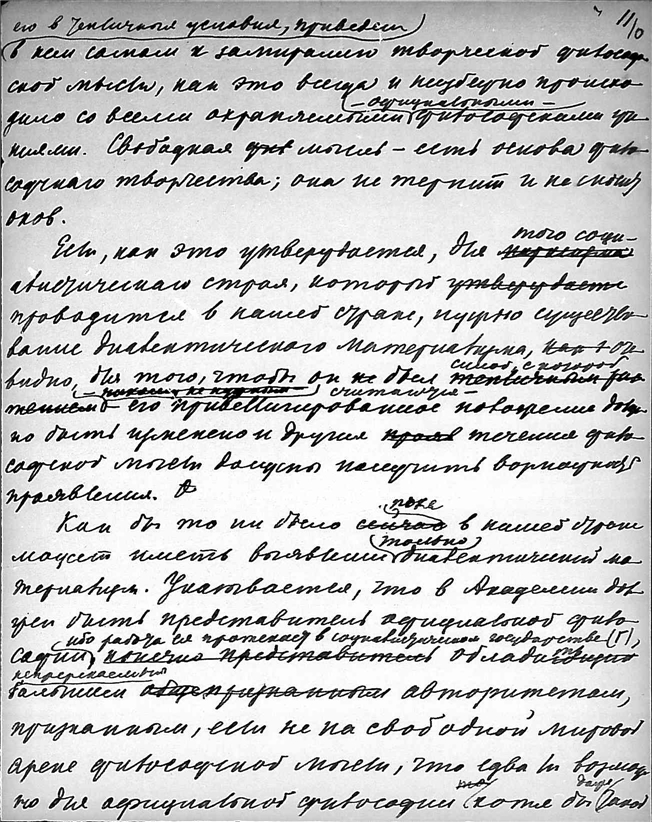 11/0
его в тепличныя условия, приведет
в нем самом к замиранию творческой философ-
ской мысли, как это всегда и неизбежно происхо-
дило со всеми охраняемыми официальными философскими уче-
ниями. Свободная мысль – есть основа фило-
софскаго творчества; она не терпит и не сносит
оков.
Если, как это утверждается, для того соци-
алистическаго строя, который
проводится в нашей стране, нужно существо-
вание диалектического материализма,
видно, для того, чтобы он не был
его привеллигированное положение долж-
но быть изменено и другия течения фило-
софской мысли должны получить возможность
проявления.
Как бы то ни было пока в нашей стране
может иметь выявление только диалектический ма-
териализм. Указывается, что в Академии дол-
жен быть представитель официальной фило-
софии, ибо работа ея протекает в социалистическом государстве (Г),
обладающий
непререкаемым
авторитетом,
признанным, если не на свободной мировой
арене философской мысли, что едва ли возмож-
но для официальной философии хотя бы даже